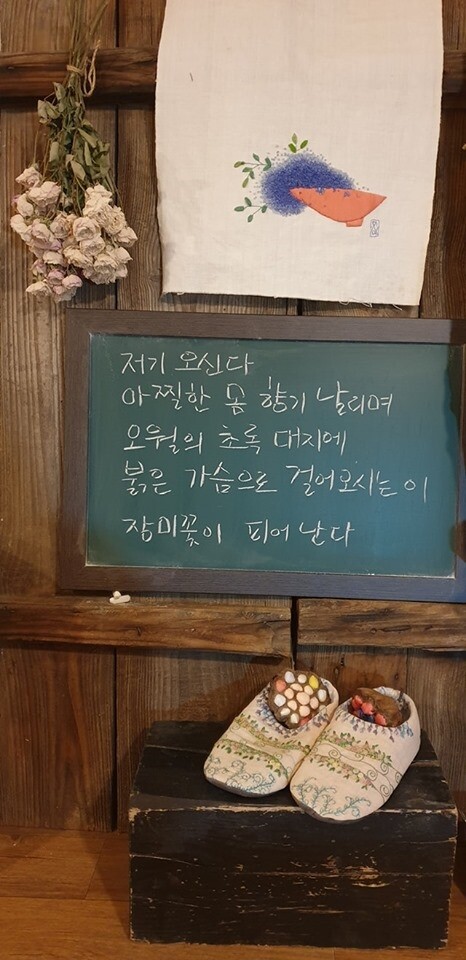 저기 오신다
아찔한 몸 향기 날리며
오월의 초록 대지에
붉은 가슴으로 걸어오시는 이
장미꽃이 피어 난다